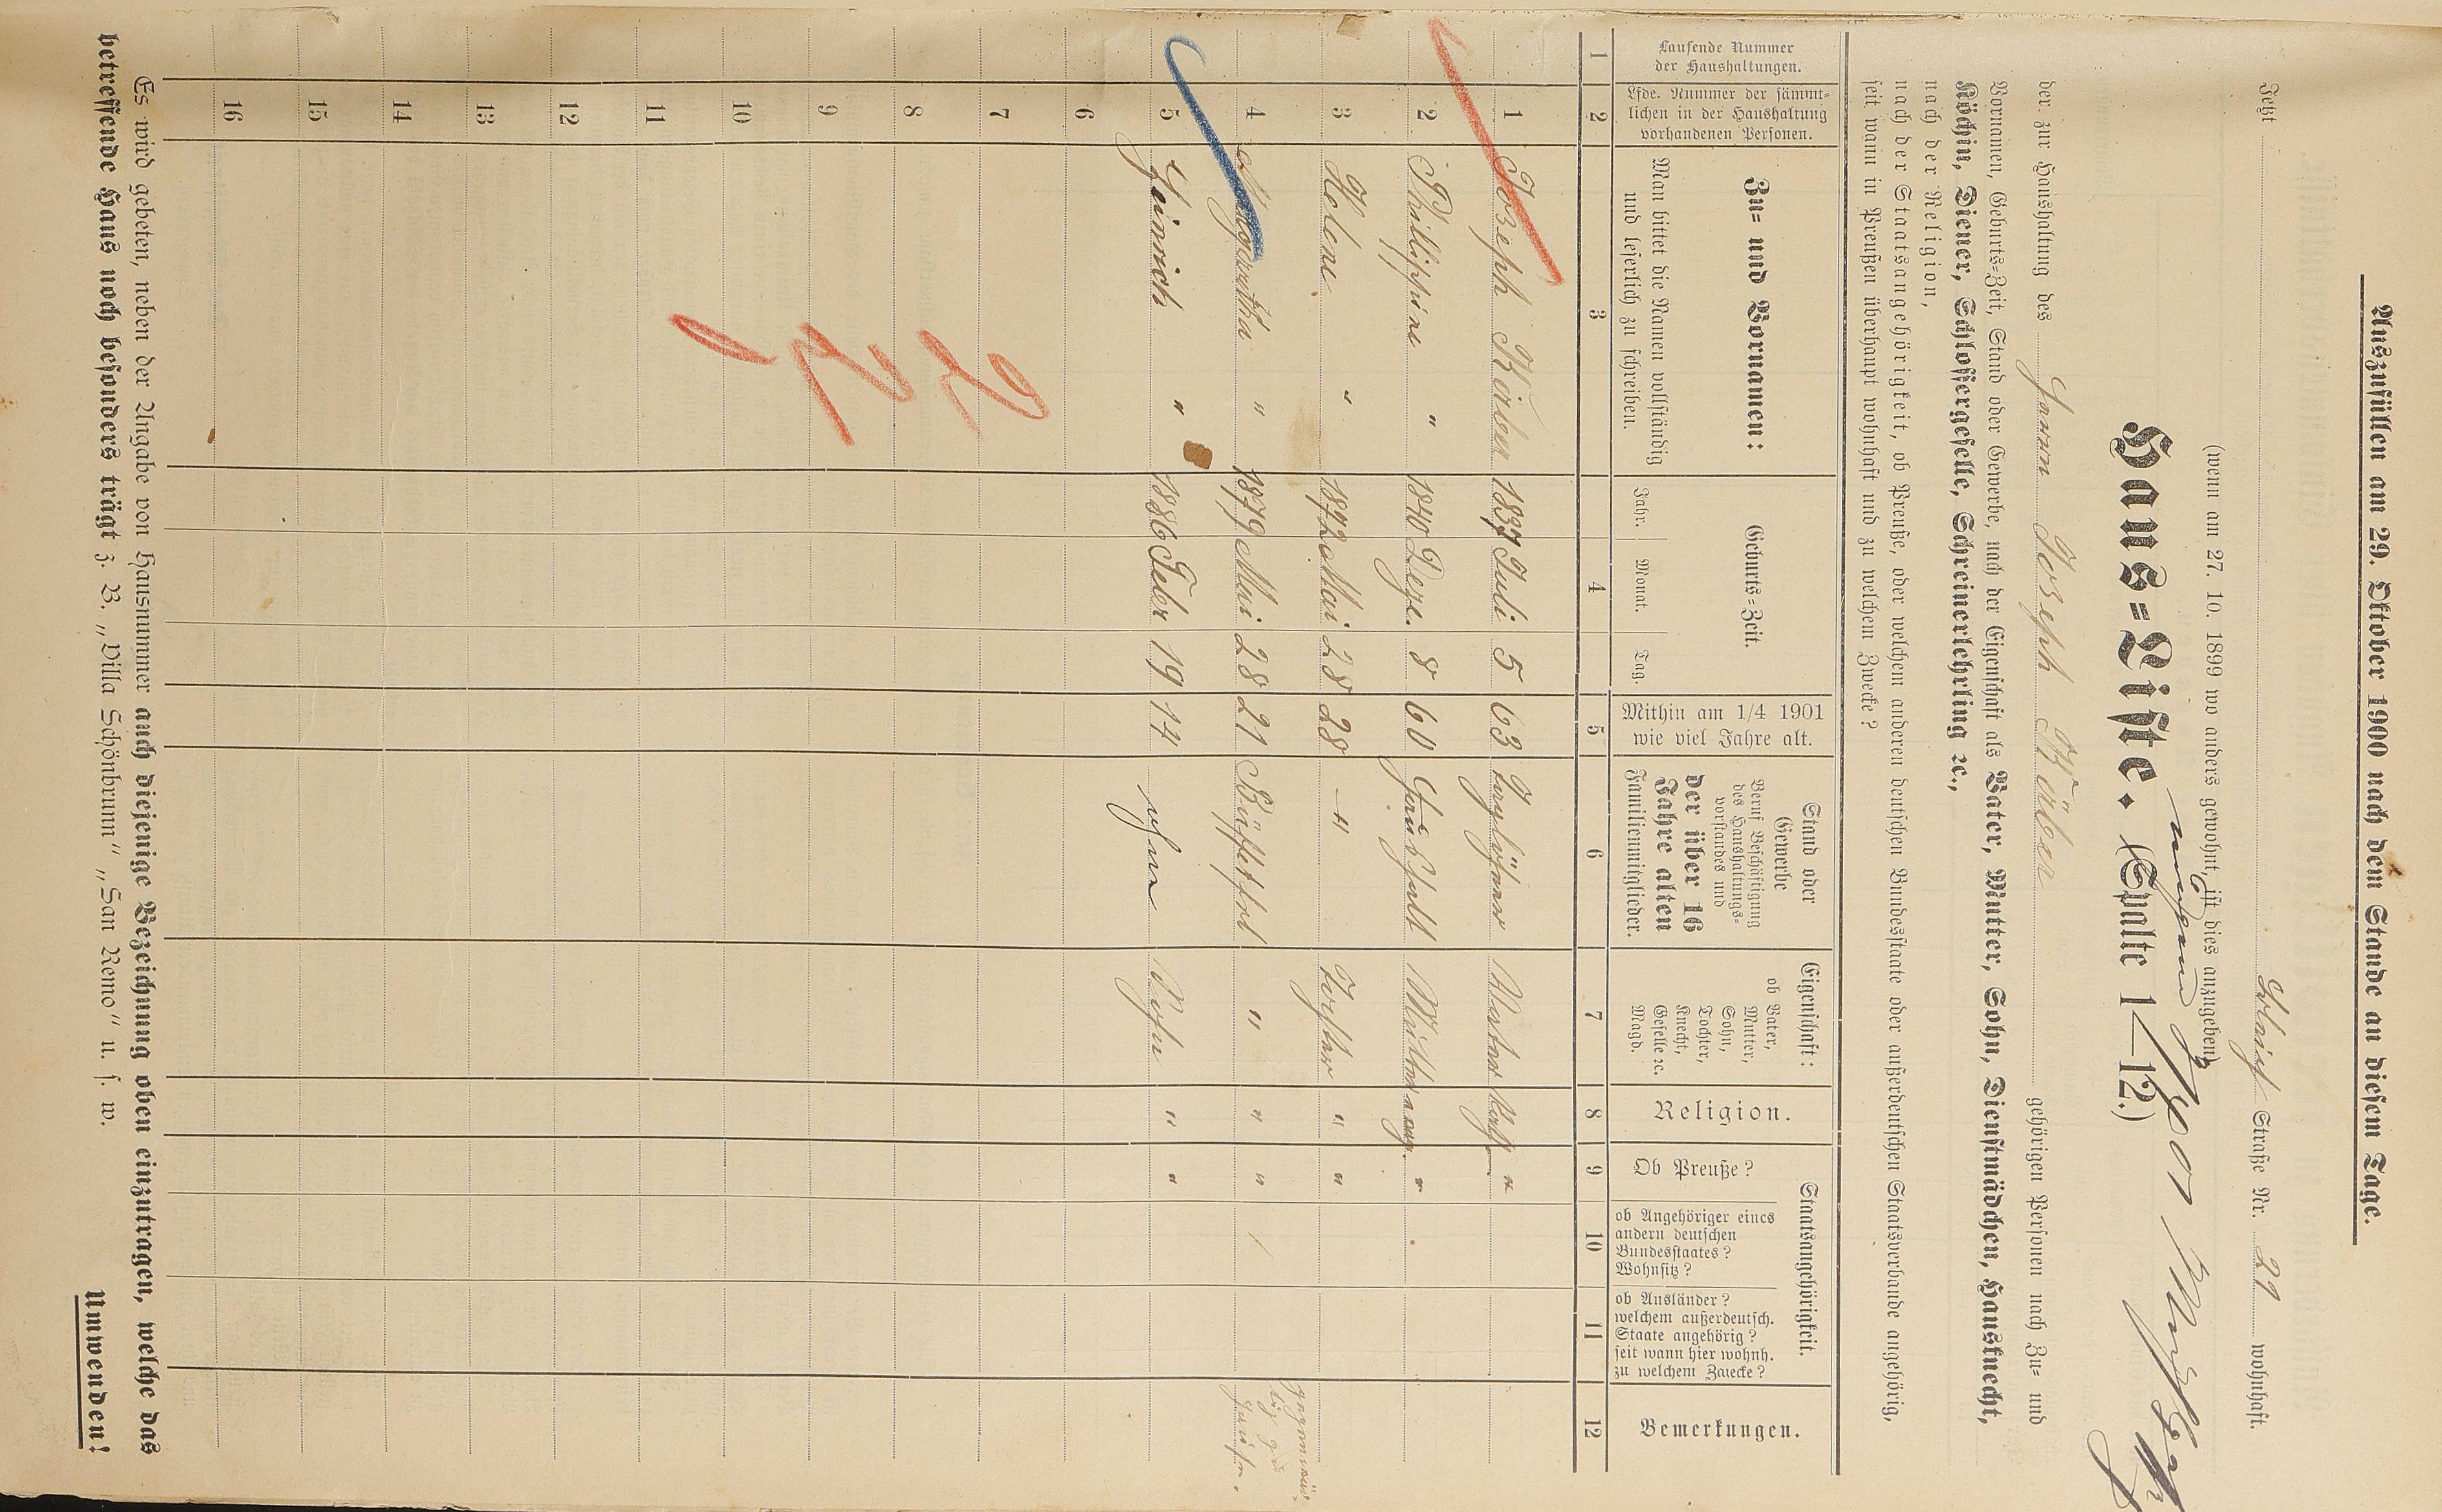 Auszufüllen am 29. Oktober 1900 nach dem Stande an diesem Tage.
Jetzt Straße Nr. 21 wohnhaft.
(wenn am 27. 10. 1899 wo anders gewohnt, ist dies anzugeben)
Haus-Liste. (Spalte 1—12.)
der zur Haushaltung des Joseph Körber gehörigen Personen nach Zu- und
Vornamen, Geburts-Zeit, Stand oder Gewerbe, nach der Eigenschaft als Vater, Mutter, Sohn, Dienstmädchen, Hausknecht,
Köchin, Diener, Schlossergeselle, Schreinerlehrling ec.,
nach der Religion,
nach der Staatsangehörigkeit, ob Preuße, oder welchem anderen deutschen Bundesstaate oder außerdeutschen Staatsverbande angehörig,
seit wann in Preußen überhaupt wohnhaft und zu welchem Zwecke?
Laufende Nummer
der Haushaltungen.
Lfde. Nummer der sämmt-
lichen in der Haushaltung
vorhandenen Personen.
Zu- und Vornamen:
Man bittet die Namen vollständig
und leserlich zu schreiben.
Geburts-Zeit.
Jahr. Monat. Tag.
Mithin am 1/4 1901
wie viel Jahre alt.
Stand oder
Gewerbe
Beruf Beschäftigung
des Haushaltungs-
vorstandes und
der über 16
Jahre alten
Familienmitglieder.
Eigenschaft:
ob Vater,
Mutter,
Sohn,
Tochter,
Knecht,
Geselle ec.
Magd.
Religion.
Staatsangehörigkeit.
Ob Preuße?
ob Angehöriger eines
andern deutschen
Bundesstaates?
Wohnsitz?
ob Ausländer?
welchem außerdeutsch.
Staate angehörig?
seit wann hier wohnh.
zu welchem Zwecke?
Bemerkungen.
1 2 3 4 5 6 7 8 9 10 11 12
1 Joseph Körber 1837 Juli 5 63 Vater kath. "
2 Philippine " 1840 Deze. 8 60 Mutter evang. "
3 Helene " 1872 Mai 28 28 " Tochter " "
4 Margaretha " 1879 Mai 28 21 Büffetfrl " " "
5 Heinrich " 1886 Febr 19 14 ohne Sohn " "
6
7
8
9
10
11
12
13
14
15
16
Es wird gebeten, neben der Angabe von Hausnummer auch diejenige Bezeichnung oben einzutragen, welche das
betreffende Haus noch besonders trägt z. B. „Villa Schönbrunn“ „San Remo“ u. s. w.
Umwenden!